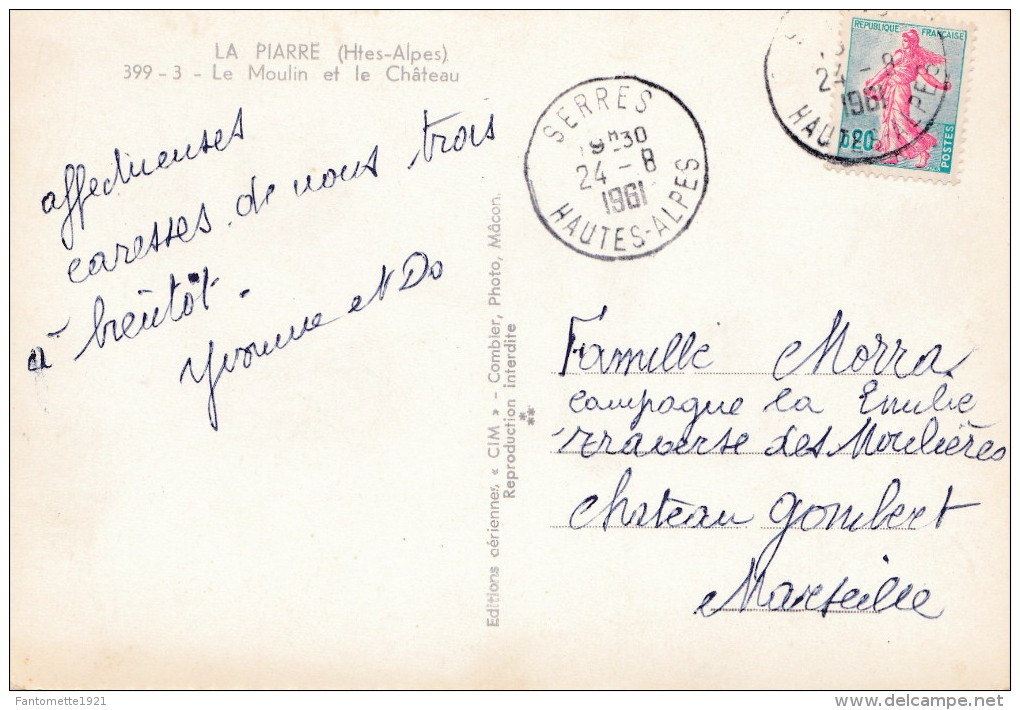 LA PIARRE (Htes-Alpes)
399 - 3 - Le Moulin et le Château
affectueuses
caresses de nous trois
à bientôt.
Yvonne et Do
Editions aériennes, « CIM » - Combier, Photo, Mâcon.
Reproduction interdite
SERRES
19H30
24 - 8
1961
HAUTES-ALPES
24 - 8
1961
HAUTES-ALPES
REPUBLIQUE FRANÇAISE
0,20
POSTES
Famille Morra
campagne la Emilie
Traverse des Moulières
Chateau Gombert
Marseille
Fantomette1921
delcampe.net